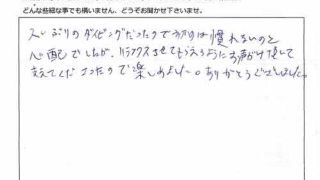 どんな些細な事でも構いません、どうぞお聞かせ下さいませ。
久しぶりのダイビングだったので初めは慣れないのと
心配でしたが、リラックスさせてもらえるようにお声がけをして
支えてくださったので楽しめました。ありがとうございました。